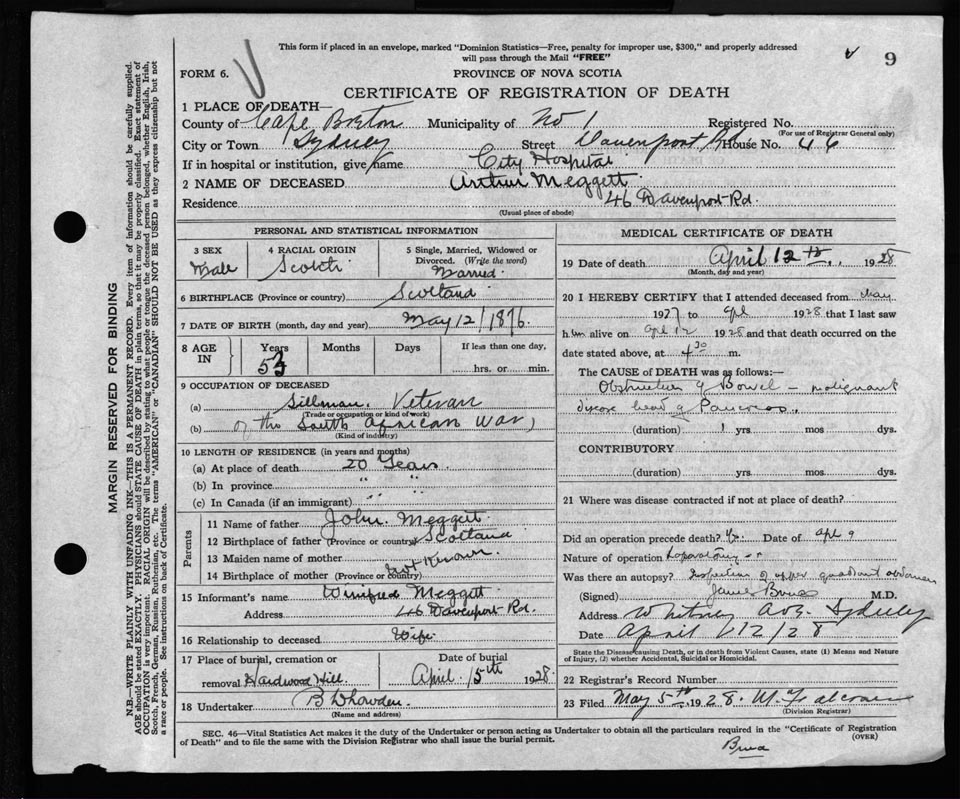 This form if placed in an envelope, marked "Dominion Statistics—Free, penalty for improper use, $300," and properly addressed
will pass through the Mail "FREE"
9
FORM 6.
PROVINCE OF NOVA SCOTIA
CERTIFICATE OF REGISTRATION OF DEATH
1 PLACE OF DEATH—
County of Cape Breton Municipality of No 1 Registered No.
(For use of Registrar General only)
City or Town Sydney Street Davenport Rd House No. 46
If in hospital or institution, give name City Hospital
2 NAME OF DECEASED Arthur Meggett
Residence 46 Davenport Rd.
(Usual place of abode)
PERSONAL AND STATISTICAL INFORMATION
3 SEX 4 RACIAL ORIGIN 5 Single, Married, Widowed or
Divorced. (Write the word)
Male Scotch Married
6 BIRTHPLACE (Province or country) Scotland
7 DATE OF BIRTH (month, day and year) May 12/1876
8 AGE IN Years Months Days If less than one day,
hrs. or min.
9 OCCUPATION OF DECEASED
(a) Veteran
(Trade or occupation or kind of work)
(b) of the South African War)
(Kind of industry)
10 LENGTH OF RESIDENCE (in years and months)
(a) At place of death 20 Years
(b) In province " "
(c) In Canada (if an immigrant) " "
Parents
11 Name of father John Meggett
12 Birthplace of father (Province or country) Scotland
13 Maiden name of mother
14 Birthplace of mother (Province or country) Not Known
15 Informant's name Winifred Meggett
Address 46 Davenport Rd.
16 Relationship to deceased Wife
17 Place of burial, cremation or Date of burial
removal Hardwood Hill April 15th 1928
18 Undertaker
(Name and address)
MEDICAL CERTIFICATE OF DEATH
19 Date of death April 12th, 1928
(Month, day and year)
20 I HEREBY CERTIFY that I attended deceased from May
1927 to Apl 1928 that I last saw
him alive on Apl 12 1928 and that death occurred on the
date stated above, at 4 30 m.
The CAUSE OF DEATH was as follows:—
Obstruction of Bowel — malignant
disease head of Pancreas
(duration) 1 yrs. mos. dys.
CONTRIBUTORY
(duration) yrs. mos. dys.
21 Where was disease contracted if not at place of death?
Did an operation precede death? Date of Apl 9
Nature of operation Laparotomy
Was there an autopsy? Inspection of upper quadrant abdomen
(Signed) James Bruce M.D.
Address Whitney Ave. Sydney
Date April 12/28
State the Disease Causing Death, or in death from Violent Causes, state (1) Means and Nature
of Injury, (2) whether Accidental, Suicidal or Homicidal.
22 Registrar's Record Number
23 Filed May 5th 1928.
(Division Registrar)
SEC. 46—Vital Statistics Act makes it the duty of the Undertaker or person acting as Undertaker to obtain all the particulars required in the "Certificate of Registration
of Death" and to file the same with the Division Registrar who shall issue the burial permit.
(OVER)
MARGIN RESERVED FOR BINDING
N.B.—WRITE PLAINLY WITH UNFADING INK—THIS IS A PERMANENT RECORD. Every item of information should be carefully supplied.
AGE should be stated EXACTLY. PHYSICIANS should STATE CAUSE OF DEATH in plain terms, so that it may be properly classified. Exact statement of
OCCUPATION is very important. RACIAL ORIGIN will be described by stating to what people or tongue the deceased person belonged, whether English, Irish,
Scotch, French, German, Russian, Ruthenian, etc. The terms "AMERICAN" or "CANADIAN" SHOULD NOT BE USED as they express citizenship but not
a race or people. See instructions on back of Certificate.